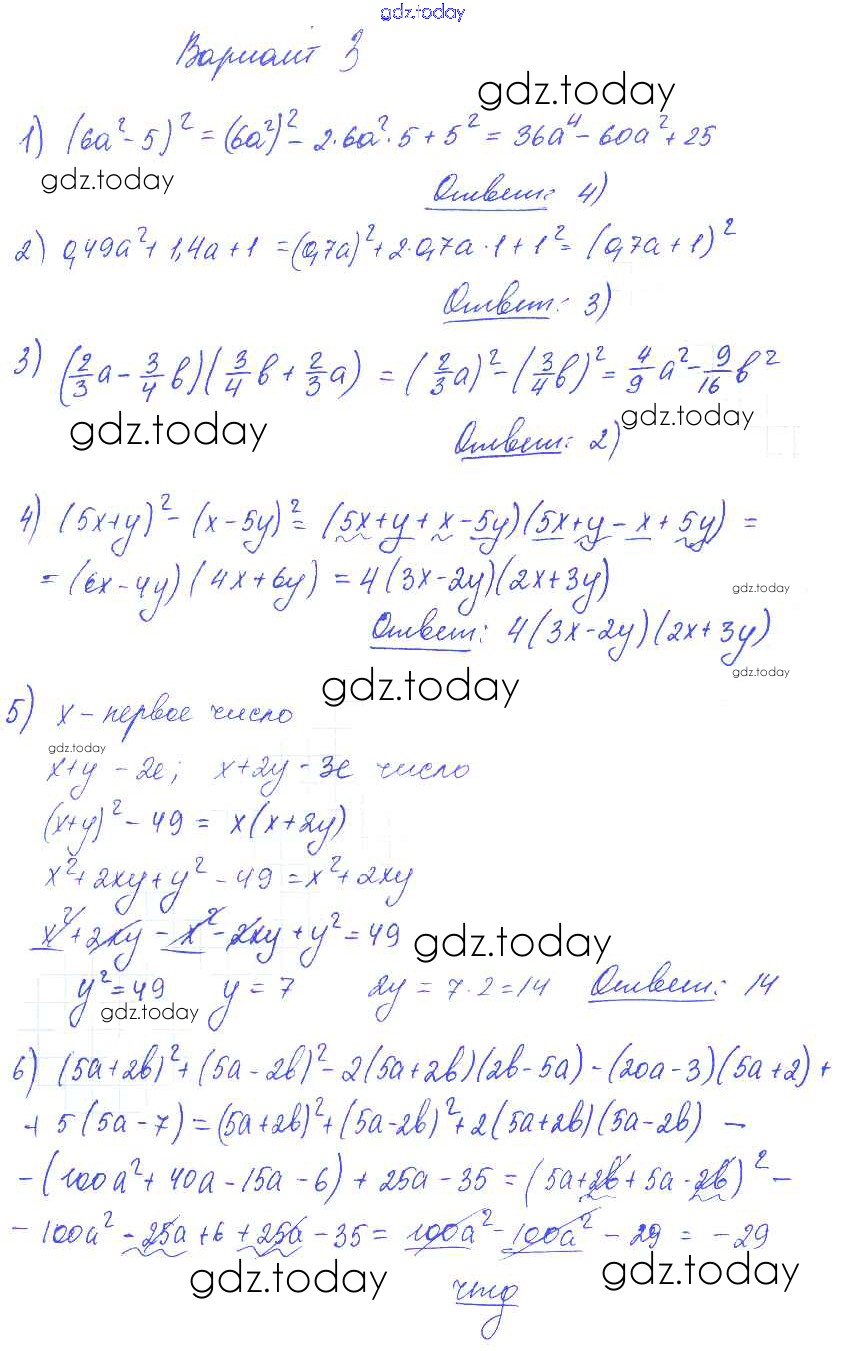 gdz.today
Вариант 3
gdz.today
1) (6a² - 5)² = (6a²)² - 2·6a²·5 + 5² = 36a⁴ - 60a² + 25
gdz.today
Ответ: 4)
2) 0,49a² + 1,4a + 1 = (0,7a)² + 2·0,7a·1 + 1² = (0,7a + 1)²
Ответ: 3)
3) (2/3 a - 3/4 b)(3/4 b + 2/3 a) = (2/3 a)² - (3/4 b)² = 4/9 a² - 9/16 b²
gdz.today
gdz.today
Ответ: 2)
4) (5x+y)² - (x-5y)² = (5x+y+x-5y)(5x+y-x+5y) =
= (6x-4y)(4x+6y) = 4(3x-2y)(2x+3y)
gdz.today
Ответ: 4(3x-2y)(2x+3y)
gdz.today
gdz.today
5) x - первое число
gdz.today
x+y - 2е; x+2y - 3е число
(x+y)² - 49 = x(x+2y)
x² + 2xy + y² - 49 = x² + 2xy
x² + 2xy - x² - 2xy + y² = 49
gdz.today
y² = 49 y = 7 2y = 7·2 = 14 Ответ: 14
gdz.today
6) (5a+2b)² + (5a-2b)² - 2(5a+2b)(2b-5a) - (20a-3)(5a+2) +
+ 5(5a-7) = (5a+2b)² + (5a-2b)² + 2(5a+2b)(5a-2b) -
- (100a² + 40a - 15a - 6) + 25a - 35 = (5a+2b+5a-2b)² -
- 100a² - 25a + 6 + 25a - 35 = 100a² - 100a² - 29 = -29
gdz.today
gdz.today
чтд